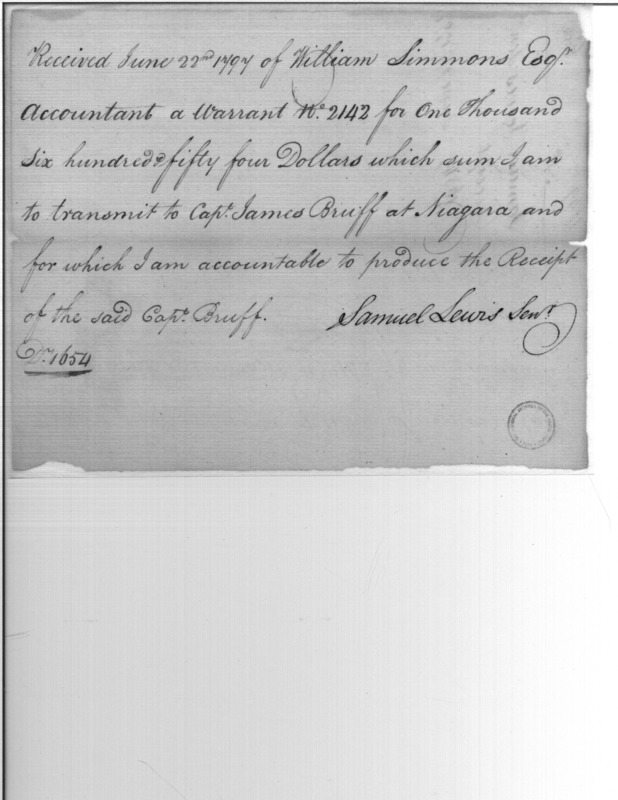 Received June 22nd 1797 of William Simmons Esqr.
Accountant a Warrant No. 2142 for One Thousand
Six hundred & fifty four Dollars which sum I am
to transmit to Capt. James Bruff at Niagara and
for which I am accountable to produce the Receipt
of the said Capt. Bruff. Samuel Lewis Senr.
Drs. 1654